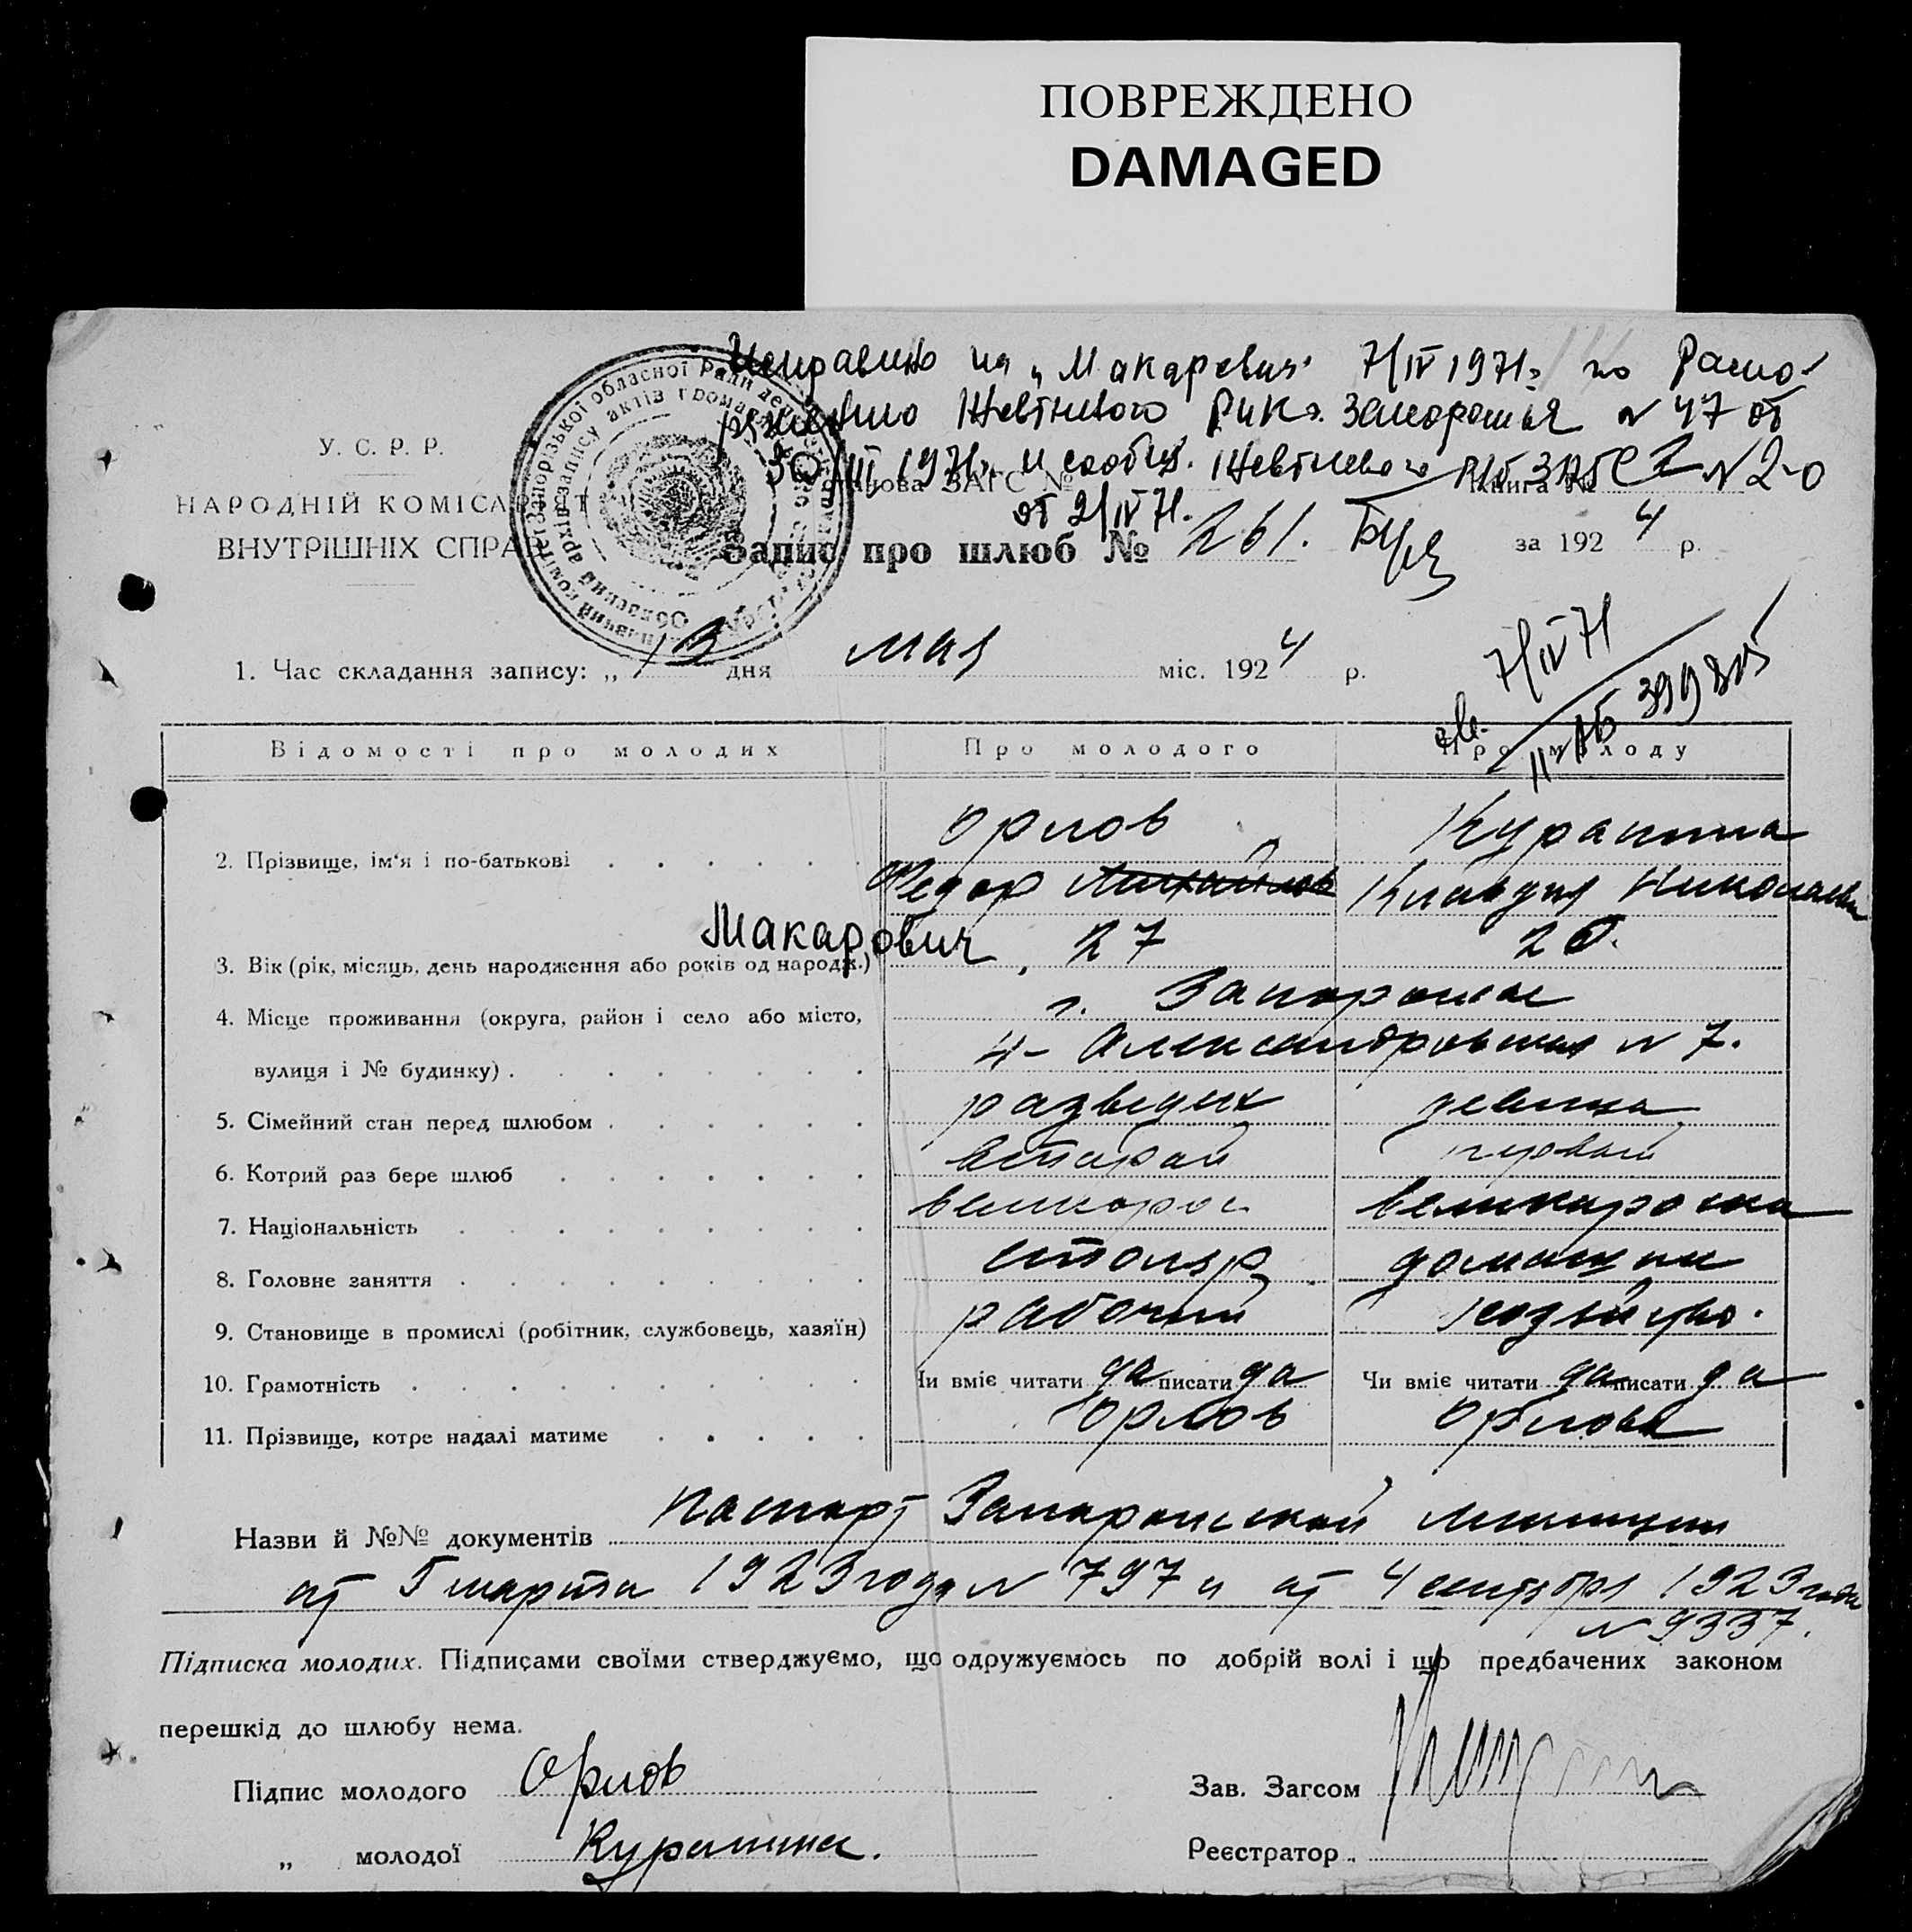 ПОВРЕЖДЕНО
DAMAGED
Исправлено на „Макарович" 7/IV 1971г. по Распо-
ряжению Жовтневого Рик г. Запорожья № 47 от
30/III 1971г. и сообщ. Жовтневого ЗАГС № 2-0
от 2/IV 71.
У. С. Р. Р.
НАРОДНІЙ КОМІСАРІЯТ
ВНУТРІШНІХ СПРАВ
Установа ЗАГС № Книга №
Запис про шлюб № 261. за 1924 р.
Запорізької обласної Ради депутатів
архів запису актів громадян
Обласний
1. Час складання запису: „ 13 дня мая міс. 1924 р.
7/IV 71
II-АБ
Відомості про молодих Про молодого Про молоду
2. Прізвище, ім'я і по-батькові Орлов Курапина
Федор Михайлов Клавдия Николаевна
Макарович
3. Вік (рік, місяць, день народження або років од народж.) 27 20.
4. Місце проживання (округа, район і село або місто, г. Запорожье
вулиця і № будинку) 4- Александровская № 7.
5. Сімейний стан перед шлюбом разведен девица
6. Котрий раз бере шлюб второй первый
7. Національність великорос великороска
8. Головне заняття столяр домашнее
9. Становище в промислі (робітник, службовець, хазяїн) рабочий хозяйство.
10. Грамотність Чи вміє читати да писати да Чи вміє читати да писати да
11. Прізвище, котре надалі матиме Орлов Орлова
Назви й №№ документів паспорт Запорожской милиции
от 5 марта 1923 года № 797 и от 4 сентября 1923 года
№ 9337.
Підписка молодих. Підписами своїми стверджуємо, що одружуємось по добрій волі і що предбачених законом
перешкід до шлюбу нема.
Підпис молодого Орлов Зав. Загсом
„ молодої Курапина. Реєстратор